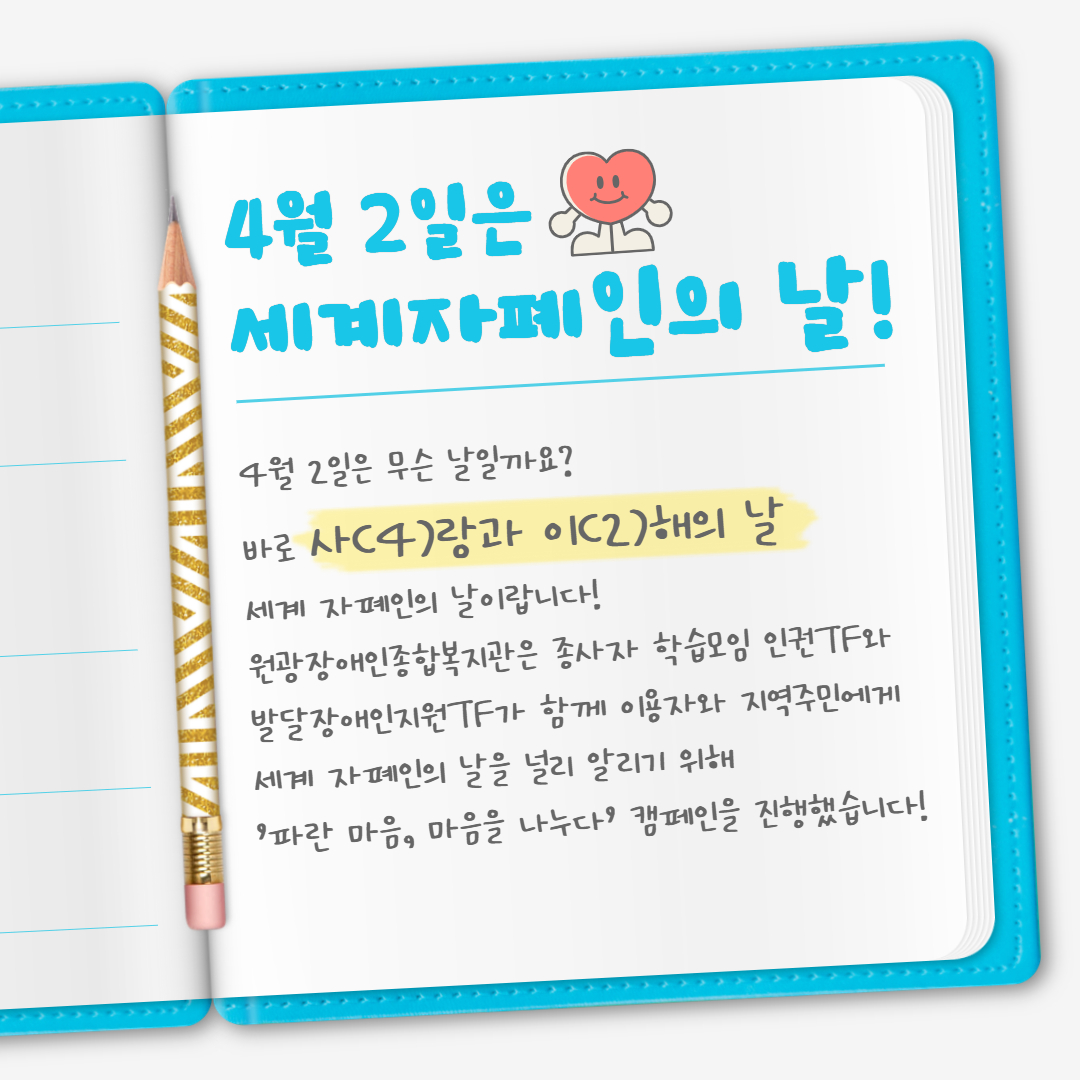 4월 2일은
세계자폐인의 날!
4월 2일은 무슨 날일까요?
바로 사(4)랑과 이(2)해의 날
세계 자폐인의 날이랍니다!
원광장애인종합복지관은 종사자 학습모임 인권TF와
발달장애인지원TF가 함께 이용자와 지역주민에게
세계 자폐인의 날을 널리 알리기 위해
'파란 마음, 마음을 나누다' 캠페인을 진행했습니다!